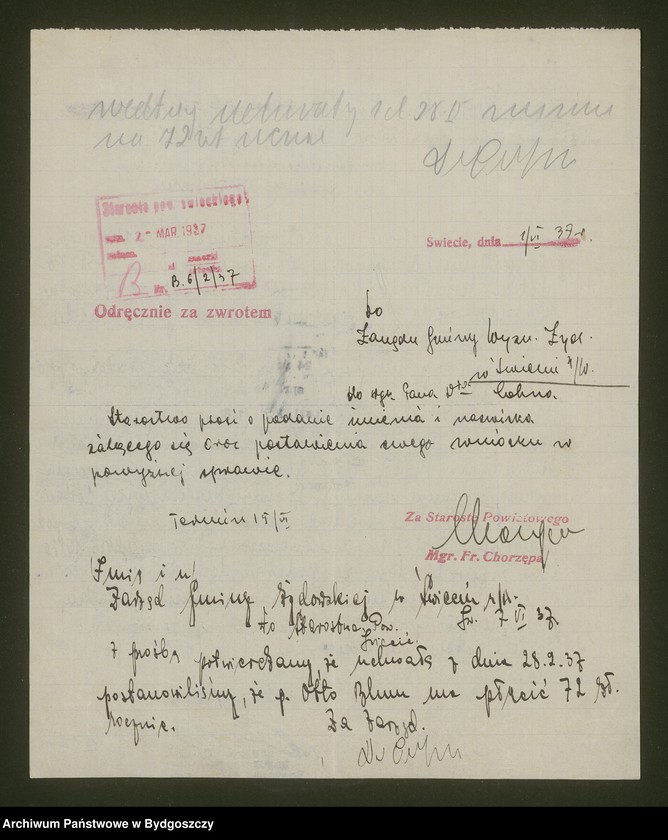 według uchwały z d 28 II
na 72 zł
Dr Cohn
Starosta pow. świeckiego
wpł. 2 - MAR 1937
B Nr. B.6/2/37
Odręcznie za zwrotem
Świecie, dnia 1/VI 37 r.
do
Zarządu Gminy Wyzn. Żyd.
w Świeciu n/W.
do rąk Pana Dra Cohna.
Starostwo prosi o podanie imienia i nazwiska
żalącego się oraz postawienia swego wniosku w
powyższej sprawie.
Termin 15/VI
Za Starostę Powiatowego
Mgr. Fr. Chorzępa
Zarząd Gminy Żydowskiej w Świeciu n/W.
Św. 7 VI 37.
do Starostwa Pow.
Świecie.
z prośbą potwierdzamy, że uchwałą z dnia 28.2.37
postanowiliśmy, że p. Otto Blum ma płacić 72 zł.
rocznie. Za Zarząd.
Dr Cohn
Archiwum Państwowe w Bydgoszczy